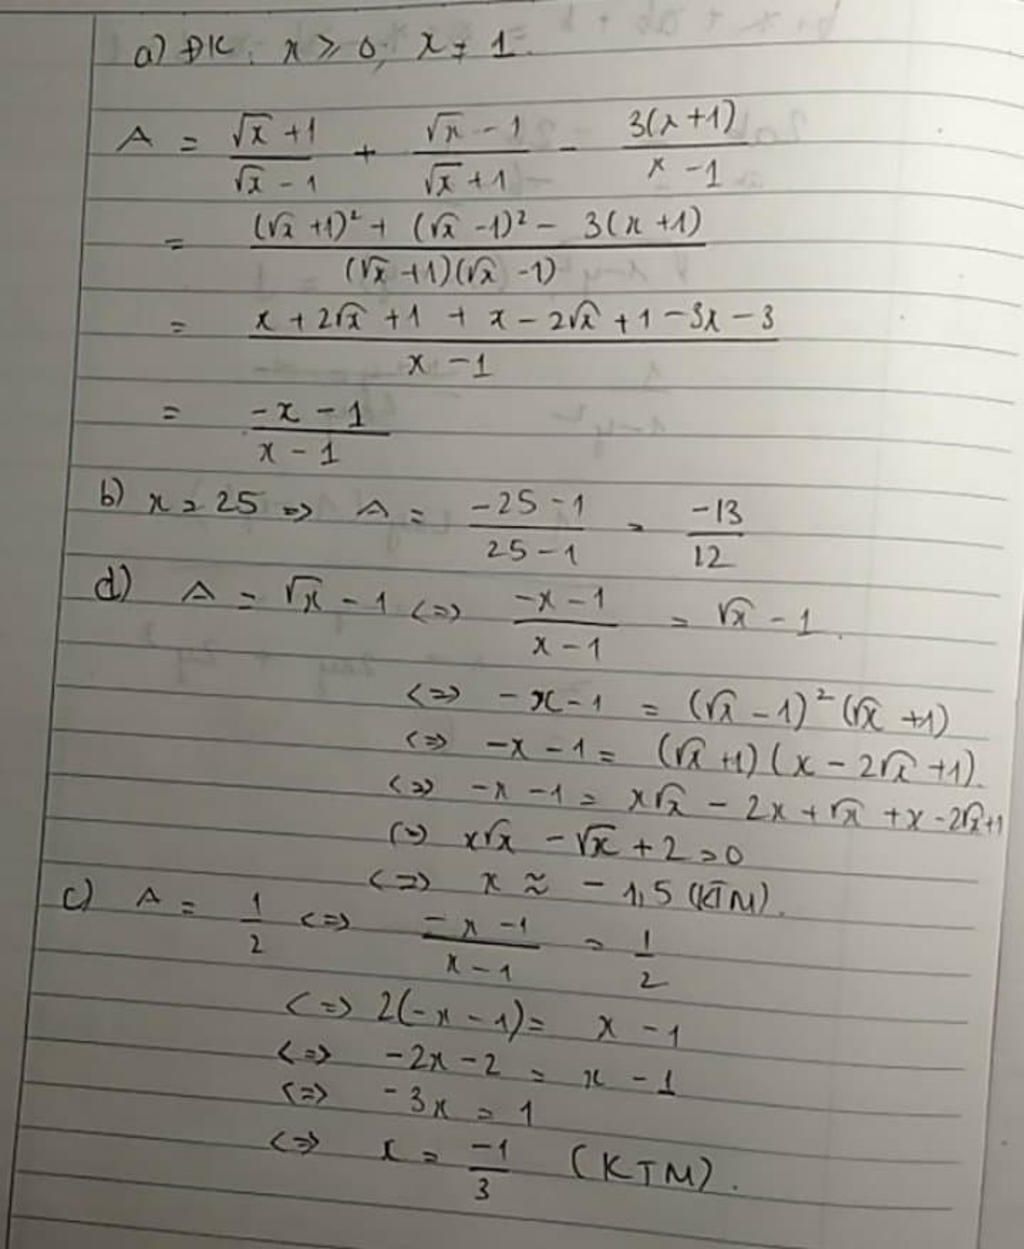 a) ĐK: x ≥ 0; x ≠ 1.
A = (√x + 1)/(√x - 1) + (√x - 1)/(√x + 1) - 3(x+1)/(x - 1)
= ((√x + 1)² + (√x - 1)² - 3(x + 1))/((√x + 1)(√x - 1))
= (x + 2√x + 1 + x - 2√x + 1 - 3x - 3)/(x - 1)
= (-x - 1)/(x - 1)
b) x = 25 => A = (-25 - 1)/(25 - 1) = -13/12
d) A = √x - 1 <=> (-x - 1)/(x - 1) = √x - 1.
<=> -x - 1 = (√x - 1)² (√x + 1)
<=> -x - 1 = (√x + 1)(x - 2√x + 1).
<=> -x - 1 = x√x - 2x + √x + x - 2√x + 1
<=> x√x - √x + 2 = 0
<=> x ≈ - 1,5 (KTM).
c) A = 1/2 <=> (-x - 1)/(x - 1) = 1/2
<=> 2(-x - 1) = x - 1
<=> -2x - 2 = x - 1
<=> -3x = 1
<=> x = -1/3 (KTM).